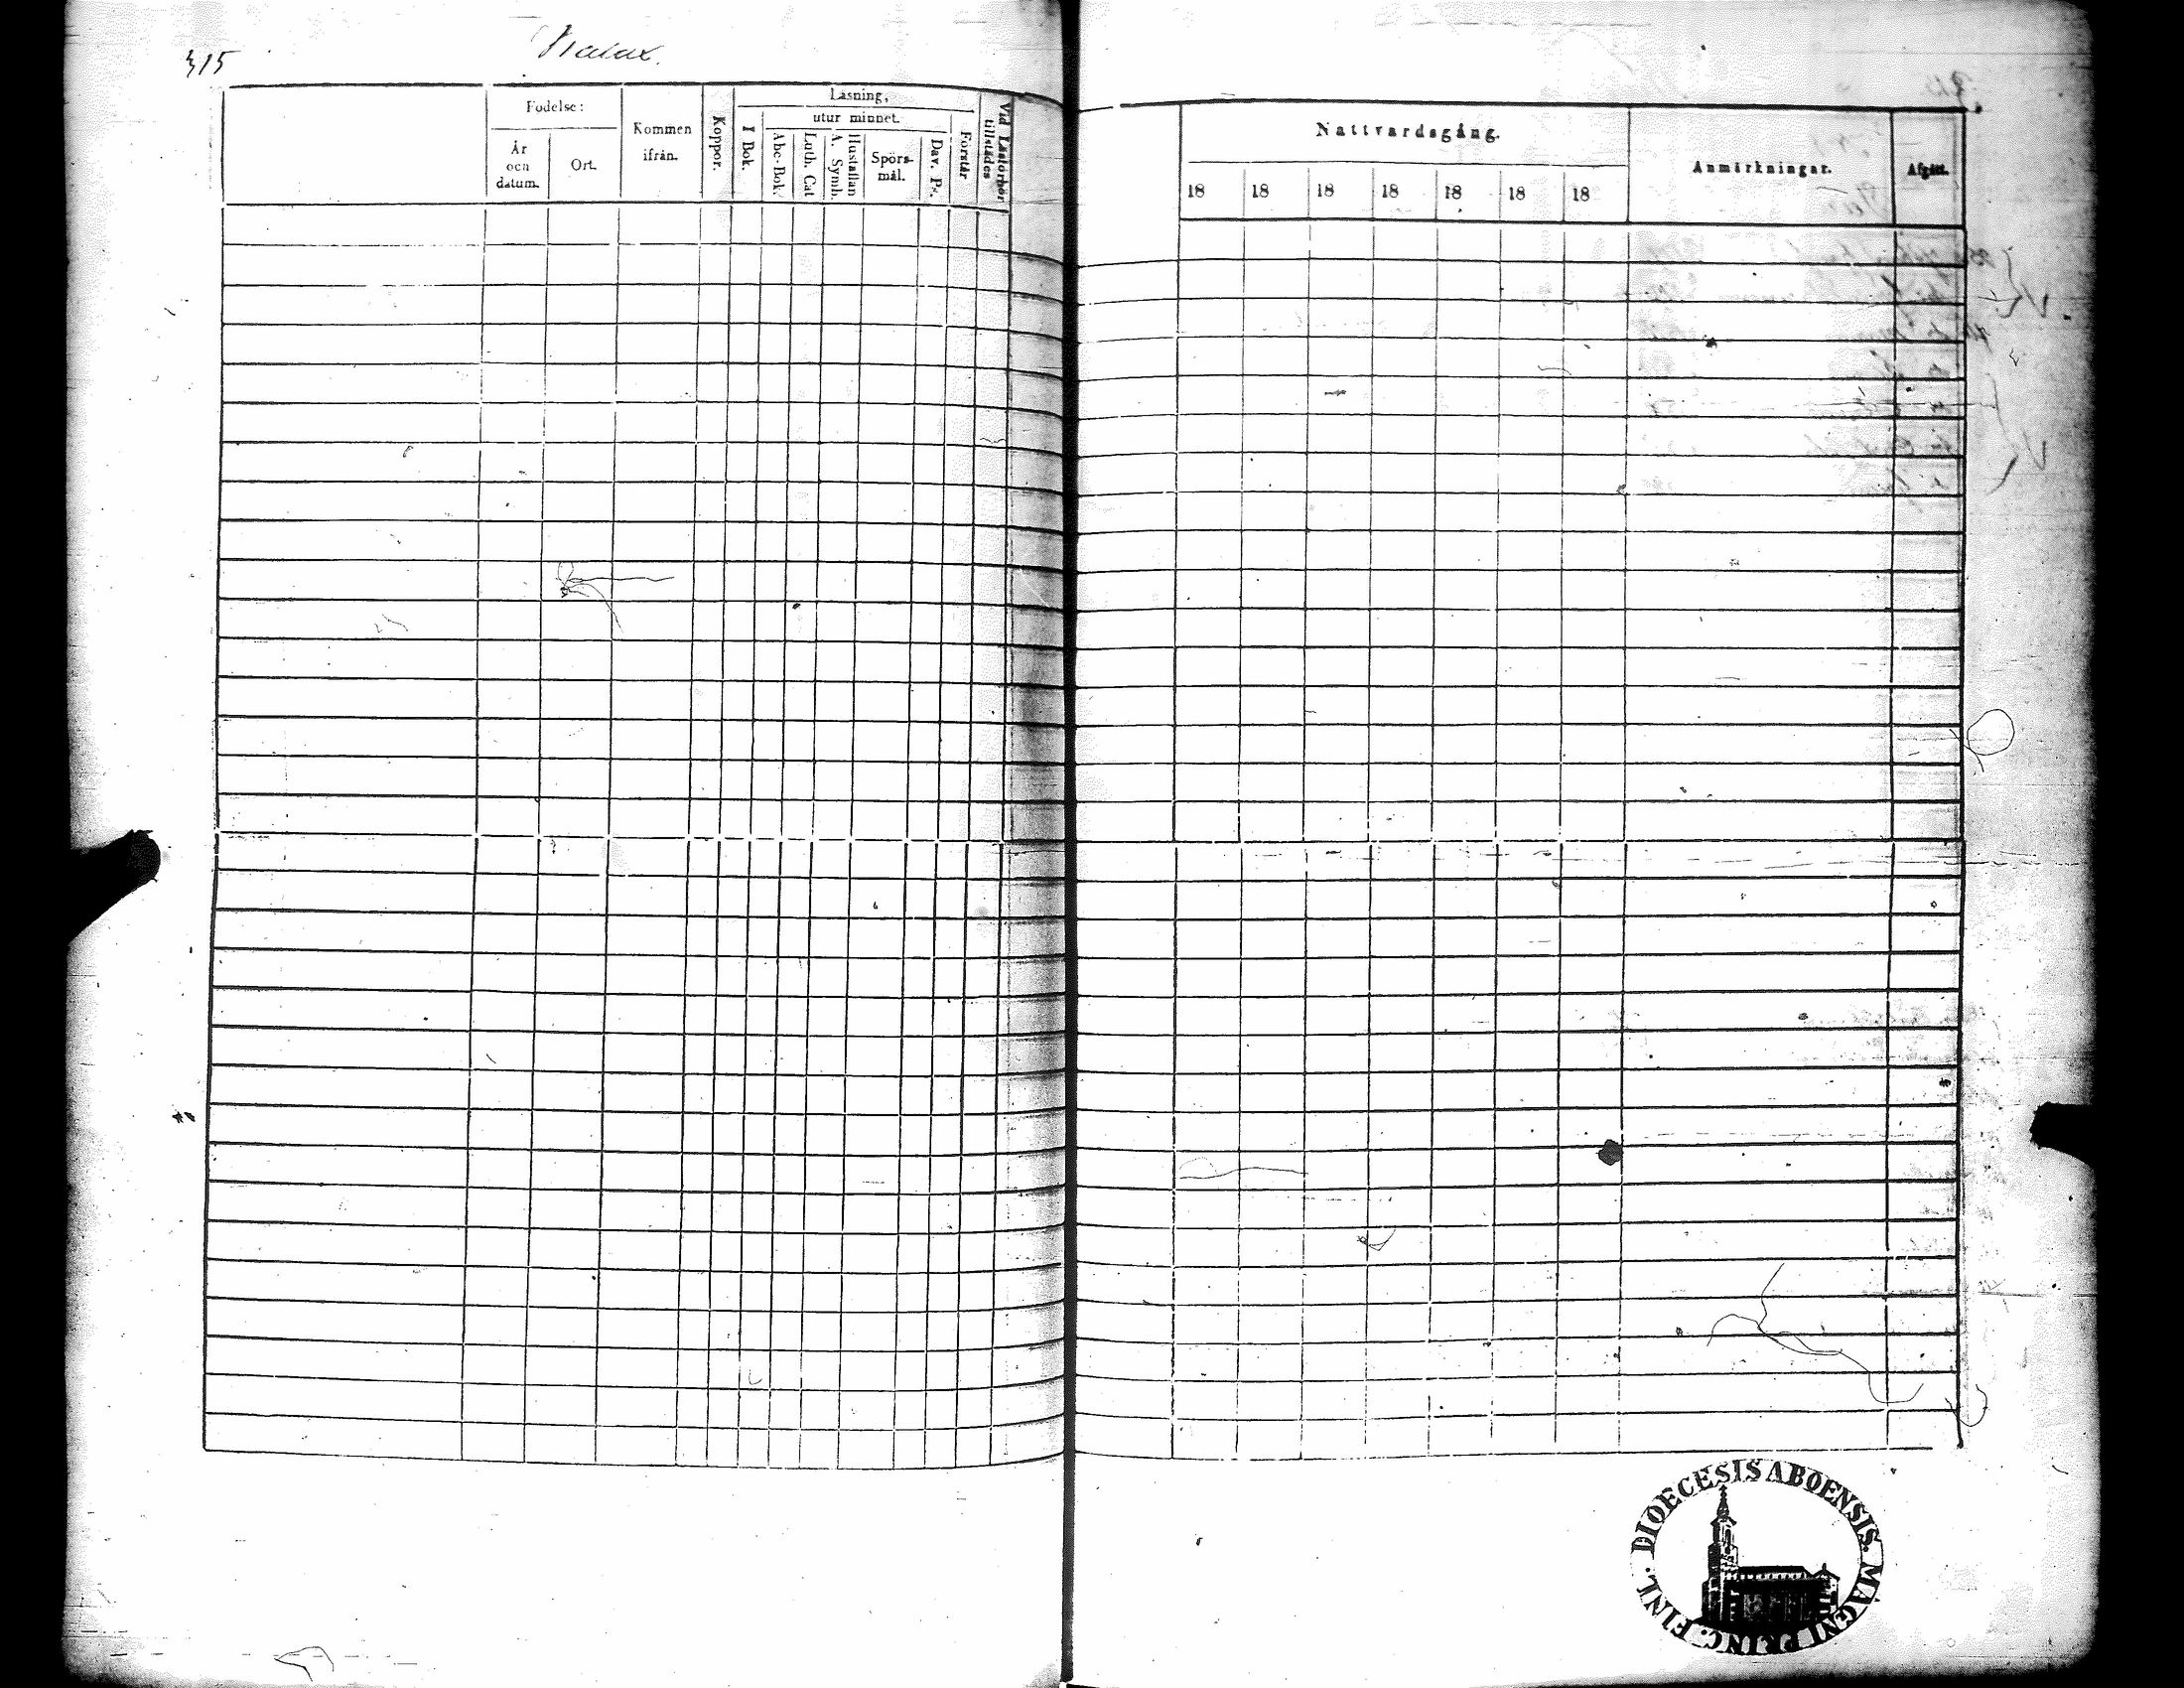 315
Fodelse:
År
och
datum.
Ort.
Kommen
ifrån.
Koppor.
Läsning,
I Bok.
utur minnet.
Abc-Bok.
Luth. Cat
A. Symb.
Hustaflan
Spörs-
mål.
Dav. Ps.
Förstår
Vid Läsförhör
tillstädes
Nattvardsgång.
18 18 18 18 18 18 18
Anmärkningar.
Afgått.
DIOECESIS ABOENSIS. MAGNI PRINC. FINL.